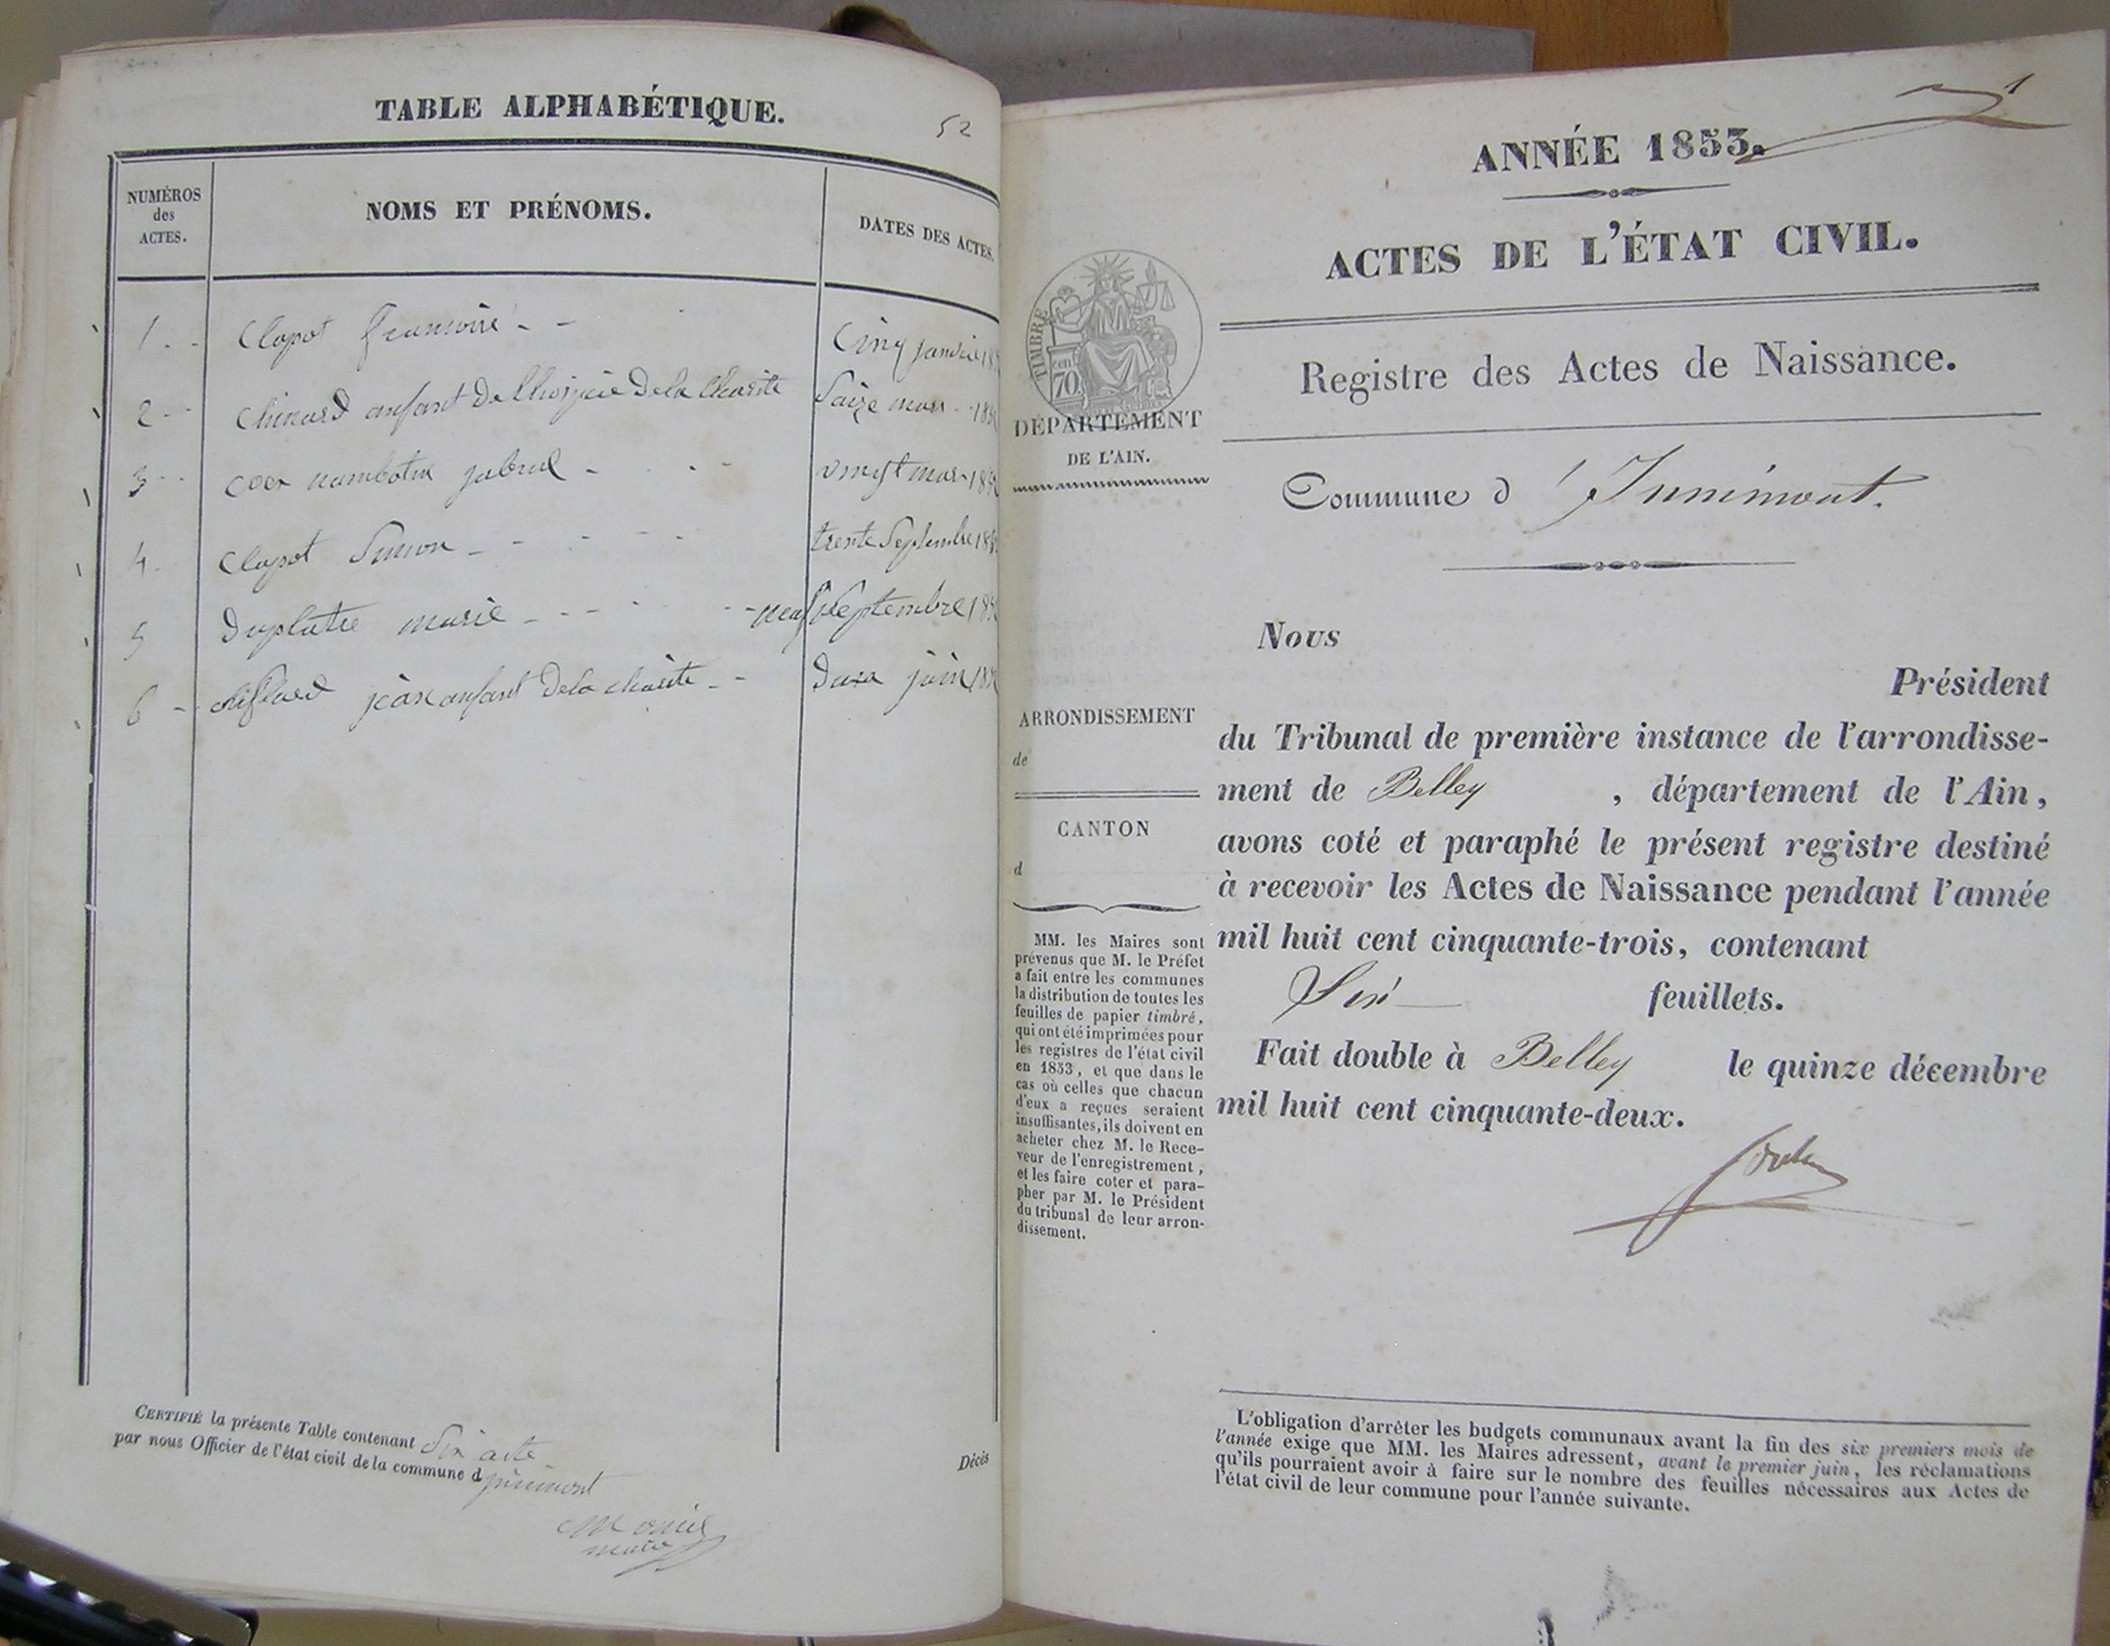 TABLE ALPHABÉTIQUE.
52
NUMÉROS
des
ACTES.
NOMS ET PRÉNOMS.
DATES DES ACTES.
1 Clapot Cinq janvier
2 Chinard anfant De Dela Charité Saize mars
3 vingt mars
4 Clapot Simon trente Septembre
5 Duplatre marie neuf Septembre
6 jean anfant Dela charite juin
CERTIFIÉ la présente Table contenant Six acte
par nous Officier de l'état civil de la commune d
maire
Décès
1
ANNÉE 1853.
ACTES DE L'ÉTAT CIVIL.
TIMBRE
70 cen
DÉPARTEMENT
DE L'AIN.
Registre des Actes de Naissance.
Commune d'Innimont.
Nous
Président
du Tribunal de première instance de l'arrondisse-
ment de Belley , département de l'Ain,
avons coté et paraphé le présent registre destiné
à recevoir les Actes de Naissance pendant l'année
mil huit cent cinquante-trois, contenant
Six feuillets.
Fait double à Belley le quinze décembre
mil huit cent cinquante-deux.
ARRONDISSEMENT
de
CANTON
d
MM. les Maires sont
prévenus que M. le Préfet
a fait entre les communes
la distribution de toutes les
feuilles de papier timbré,
qui ont été imprimées pour
les registres de l'état civil
en 1853, et que dans le
cas où celles que chacun
d'eux a reçues seraient
insuffisantes, ils doivent en
acheter chez M. le Rece-
veur de l'enregistrement,
et les faire coter et para-
pher par M. le Président
du tribunal de leur arron-
dissement.
L'obligation d'arrêter les budgets communaux avant la fin des six premiers mois de
l'année exige que MM. les Maires adressent, avant le premier juin, les réclamations
qu'ils pourraient avoir à faire sur le nombre des feuilles nécessaires aux Actes de
l'état civil de leur commune pour l'année suivante.